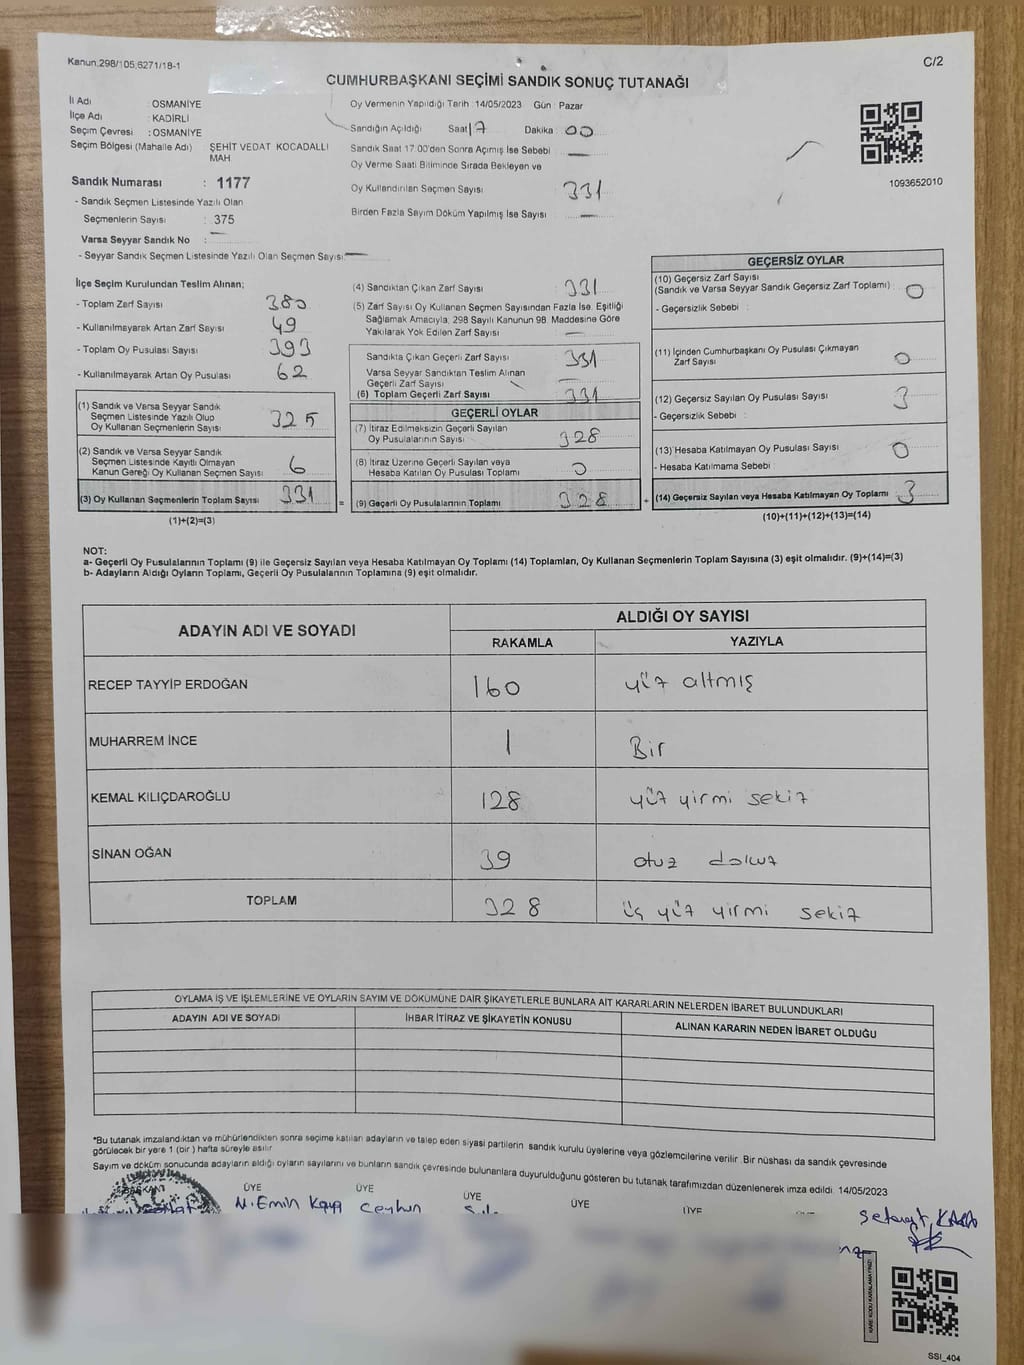 Kanun.298/105,6271/18-1
C/2
CUMHURBAŞKANI SEÇİMİ SANDIK SONUÇ TUTANAĞI
İl Adı : OSMANİYE
İlçe Adı : KADİRLİ
Seçim Çevresi : OSMANİYE
Seçim Bölgesi (Mahalle Adı) ŞEHİT VEDAT KOCADALLI MAH
Sandık Numarası : 1177
- Sandık Seçmen Listesinde Yazılı Olan
Seçmenlerin Sayısı : 375
Varsa Seyyar Sandık No : —
- Seyyar Sandık Seçmen Listesinde Yazılı Olan Seçmen Sayısı: —
Oy Vermenin Yapıldığı Tarih : 14/05/2023 Gün : Pazar
Sandığın Açıldığı Saat 17 Dakika : 00
Sandık Saat 17:00'den Sonra Açımış İse Sebebi —
Oy Verme Saati Bitiminde Sırada Bekleyen ve
Oy Kullandırılan Seçmen Sayısı 331
Birden Fazla Sayım Döküm Yapılmış İse Sayısı —
1093652010
İlçe Seçim Kurulundan Teslim Alınan;
- Toplam Zarf Sayısı 380
- Kullanılmayarak Artan Zarf Sayısı 49
- Toplam Oy Pusulası Sayısı 393
- Kullanılmayarak Artan Oy Pusulası 62
(1) Sandık ve Varsa Seyyar Sandık
Seçmen Listesinde Yazılı Olup
Oy Kullanan Seçmenlerin Sayısı 325
(2) Sandık ve Varsa Seyyar Sandık
Seçmen Listesinde Kayıtlı Olmayan
Kanun Gereği Oy Kullanan Seçmen Sayısı 6
(3) Oy Kullanan Seçmenlerin Toplam Sayısı 331
(1)+(2)=(3)
(4) Sandıktan Çıkan Zarf Sayısı 331
(5) Zarf Sayısı Oy Kullanan Seçmen Sayısından Fazla İse, Eşitliği
Sağlamak Amacıyla, 298 Sayılı Kanunun 98. Maddesine Göre
Yakılarak Yok Edilen Zarf Sayısı —
Sandıkta Çıkan Geçerli Zarf Sayısı 331
Varsa Seyyar Sandıktan Teslim Alınan
Geçerli Zarf Sayısı —
(6) Toplam Geçerli Zarf Sayısı 331
GEÇERLİ OYLAR
(7) İtiraz Edilmeksizin Geçerli Sayılan
Oy Pusulalarının Sayısı 328
(8) İtiraz Üzerine Geçerli Sayılan veya
Hesaba Katılan Oy Pusulası Toplamı 0
= (9) Geçerli Oy Pusulalarının Toplamı 328 +
GEÇERSİZ OYLAR
(10) Geçersiz Zarf Sayısı
(Sandık ve Varsa Seyyar Sandık Geçersiz Zarf Toplamı) 0
- Geçersizlik Sebebi :
(11) İçinden Cumhurbaşkanı Oy Pusulası Çıkmayan
Zarf Sayısı 0
(12) Geçersiz Sayılan Oy Pusulası Sayısı 3
- Geçersizlik Sebebi :
(13) Hesaba Katılmayan Oy Pusulası Sayısı 0
- Hesaba Katılmama Sebebi :
(14) Geçersiz Sayılan veya Hesaba Katılmayan Oy Toplamı 3
(10)+(11)+(12)+(13)=(14)
NOT:
a- Geçerli Oy Pusulalarının Toplamı (9) ile Geçersiz Sayılan veya Hesaba Katılmayan Oy Toplamı (14) Toplamları, Oy Kullanan Seçmenlerin Toplam Sayısına (3) eşit olmalıdır. (9)+(14)=(3)
b- Adayların Aldığı Oyların Toplamı, Geçerli Oy Pusulalarının Toplamına (9) eşit olmalıdır.
ADAYIN ADI VE SOYADI ALDIĞI OY SAYISI
RAKAMLA YAZIYLA
RECEP TAYYİP ERDOĞAN 160 yüz altmış
MUHARREM İNCE 1 Bir
KEMAL KILIÇDAROĞLU 128 yüz yirmi sekiz
SİNAN OĞAN 39 otuz dokuz
TOPLAM 328 üç yüz yirmi sekiz
OYLAMA İŞ VE İŞLEMLERİNE VE OYLARIN SAYIM VE DÖKÜMÜNE DAİR ŞİKAYETLERLE BUNLARA AİT KARARLARIN NELERDEN İBARET BULUNDUKLARI
ADAYIN ADI VE SOYADI İHBAR İTİRAZ VE ŞİKAYETİN KONUSU ALINAN KARARIN NEDEN İBARET OLDUĞU
*Bu tutanak imzalandıktan ve mühürlendikten sonra seçime katılan adayların ve talep eden siyasi partilerin sandık kurulu üyelerine veya gözlemcilerine verilir. Bir nüshası da sandık çevresinde
görülecek bir yere 1 (bir ) hafta süreyle asılır.
Sayım ve döküm sonucunda adayların aldığı oyların sayılarını ve bunların sandık çevresinde bulunanlara duyurulduğunu gösteren bu tutanak tarafımızdan düzenlenerek imza edildi. 14/05/2023
BAŞKAN ÜYE ÜYE ÜYE ÜYE ÜYE
M.Emin Kaya Ceyhun
KARE KODU KARALAMAYINIZ!
SSI_404